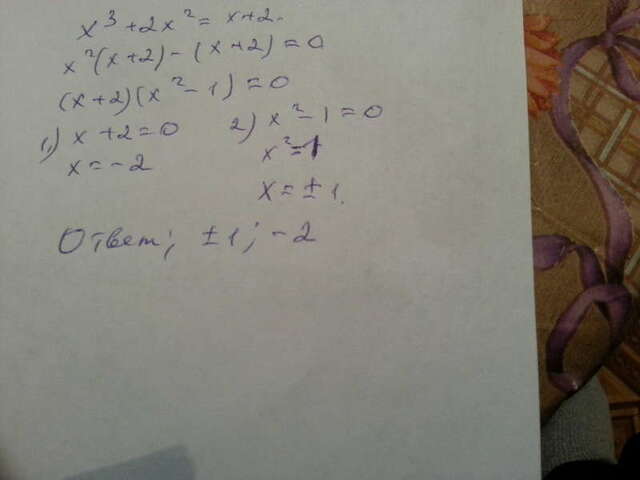 x³+2x²=x+2.
x²(x+2)-(x+2)=0
(x+2)(x²-1)=0
1) x+2=0 2) x²-1=0
x=-2 x²=1
x=±1.
Ответ; ±1; -2